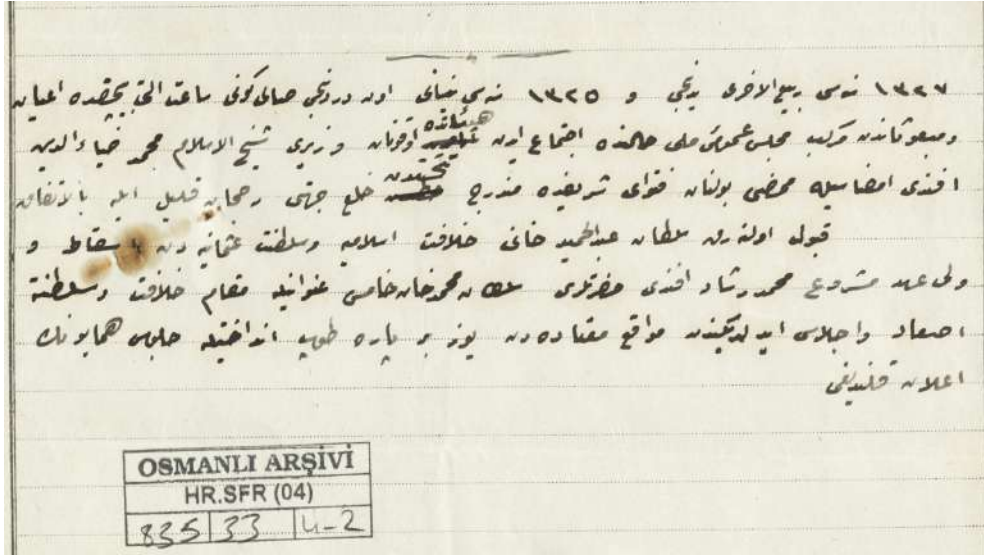 ١٣٢٧ سنه‌سى ربيع الاخرى يدنجى و ١٣٢٥ سنه‌سى نيسانى اون دردنجى صالى كونى ساعت التى بچقده اعيان
ومبعوثاندن مركب مجلس عمومئ ملى حالنده اجتماع ايدن هيئتده اوقونان شيخ الاسلام محمد ضياءالدين
افندى امضاسيله ممضى بولنان فتواى شريفه‌ده مندرج شقيندن خلع جهتى رجحان ايله بالاتفاق
قبول اولنه‌رق سلطان عبدالحميد خانى خلافت اسلاميه وسلطنت عثمانيه دن اسقاط و
ولى عهد مشروع محمد رشاد افندى حضرتلرى سلطان محمد خان خامس عنوانيله مقام خلافت وسلطنته
اصعاد واجلاس ايدلديكندن مواقع معتاده دن يوز بر پاره طوپ انداختيله جلوس همايونك
اعلان قلنديغى
OSMANLI ARŞİVİ
HR.SFR (04)
835 33 4-2